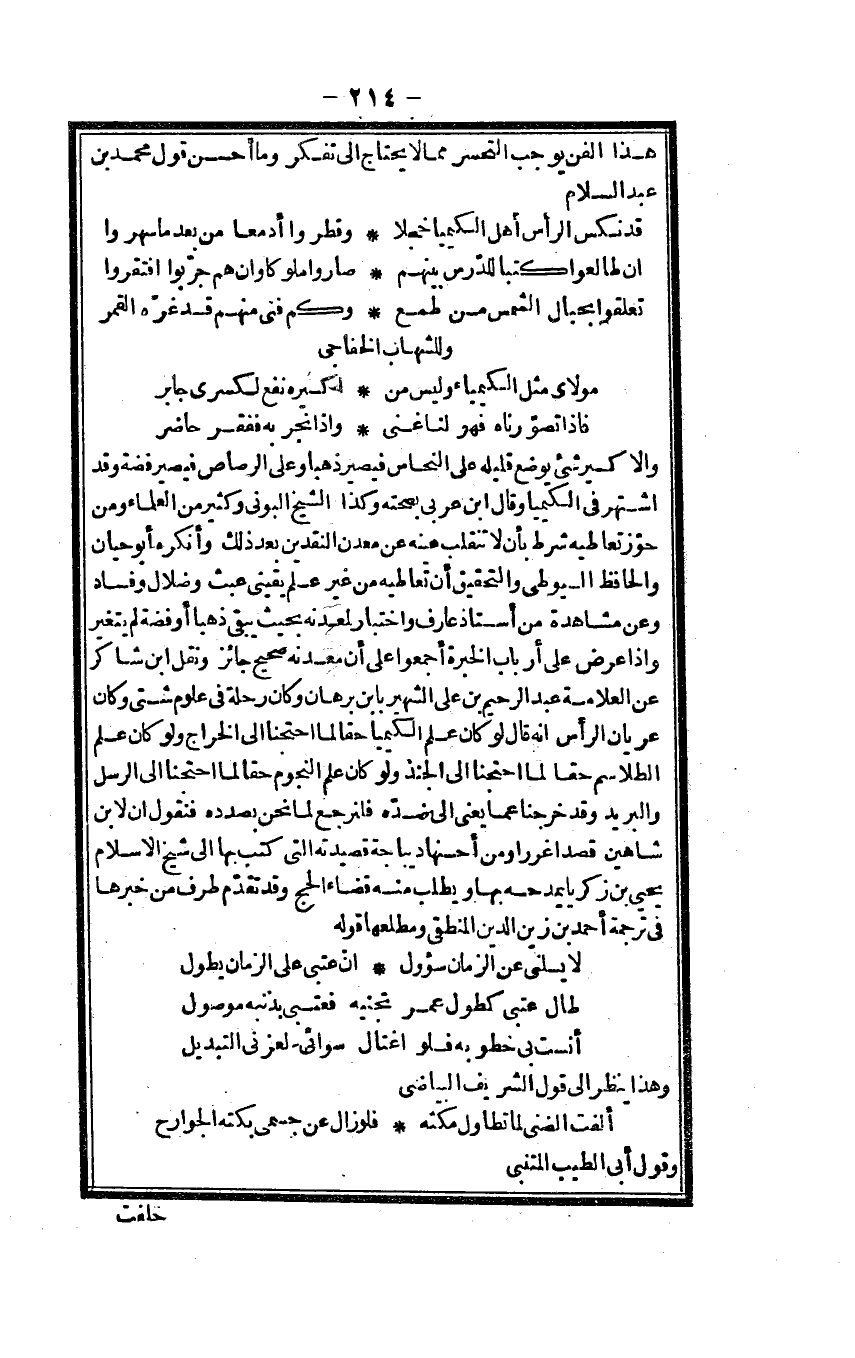 - ٢١٤ -
هذا الفن يوجب التحسر مما لا يحتاج الى تفكر وما أحسن قول محمد بن
عبد السلام
قد نكس الرأس أهل الكيميا خجلا * وقطروا أدمعا من بعد ما سهروا
ان طالعوا كتبا للدرس بينهم * صاروا ملوكا وان هم جرّبوا افتقروا
تعلقوا بحبال الشمس من طمع * وكم فتى منهم قد غرّه القمر
وللشهاب الخفاجى
مولاى مثل الكيمياء وليس من * اكسيره نفع لكسرى جابر
فاذا تصوّرناه فهو لنا غنى * واذا نجر به ففقر حاضر
والا كسير شئ يوضع قليله على النحاس فيصير ذهبا وعلى الرصاص فيصير فضة وقد
اشتهر فى الكيميا وقال ابن عربى بصحته وكذا الشيخ البونى وكثير من العلماء ومن
جوّز تعاطيه شرط بأن لا تنقلب عينه عن معدن النقدين بعد ذلك وأنكره أبو حيان
والحافظ السيوطى والتحقيق أن تعاطيه من غير علم يقينى عبث وضلال وفساد
وعن مشاهدة من أستاذ عارف واختبار لمعدنه بحيث يبقى ذهبا أو فضة لم يتغير
واذا عرض على أرباب الخبرة أجمعوا على أن معدنه صحيح جائز ونقل ابن شاكر
عن العلامة عبد الرحيم بن على الشهير بابن برهان وكان رحلة فى علوم شتى وكان
عريان الرأس انه قال لو كان علم الكيميا حقا لما احتجنا الى الخراج ولو كان علم
الطلاسم حقا لما احتجنا الى الجند ولو كان علم النجوم حقا لما احتجنا الى الرسل
والبريد وقد خرجنا عما يعنى الى ضدّه فلنرجع لما نحن بصدده فنقول ان لابن
شاهين قصدا غررا ومن أحسنها ديباجة قصيدته التى كتب بها الى شيخ الاسلام
يحيى بن زكريا يمدحه بها ويطلب منه قضاء الحج وقد تقدّم طرف من خبرها
فى ترجمة أحمد بن زين الدين المنطقى ومطلعها قوله
لا يسلنى عن الزمان سؤول * انّ عتبى على الزمان يطول
طال عتبى كطول عمر تجنيه فعتبى بذنبه موصول
أنست بى خطوبه فلو اغتال سوائى لعز فى التبديل
وهذا ينظر الى قول الشريف البياضى
ألفت الضنى لما تطاول مكثه * فلو زال عن جسمى بكته الجوارح
وقول أبى الطيب المتنبى
خلقت